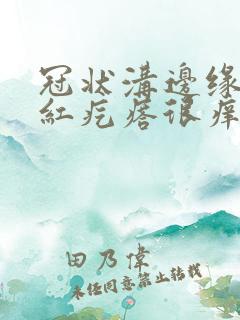 冠状溝邊缘
紅疙瘩很痒
田乃偉
未经同意禁止转载